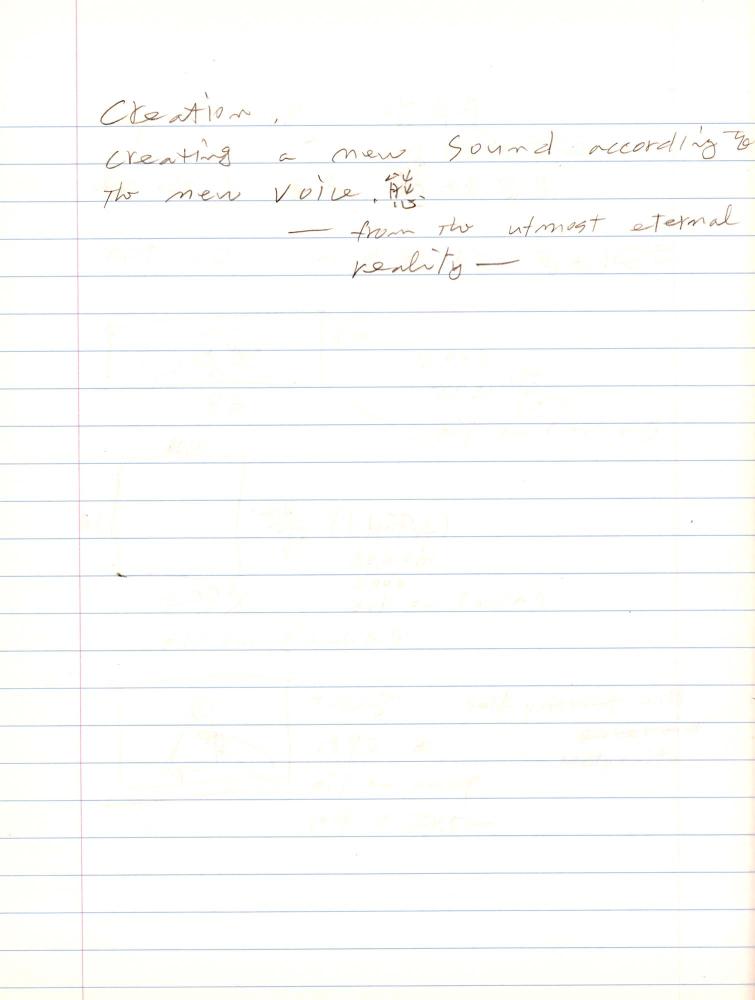 Creation.
Creating a new sound according to
the new voice.態
— from the utmost eternal
reality —